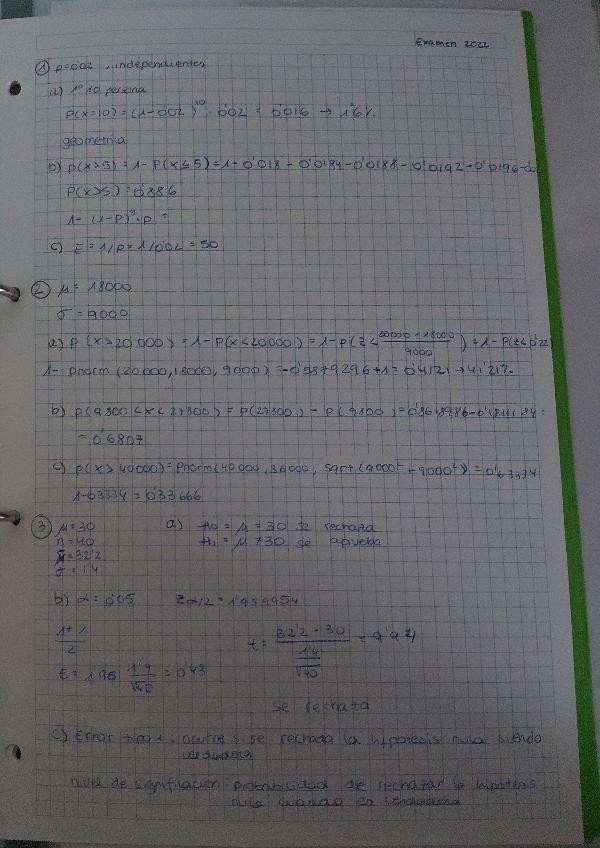 Examen 2022
1 p=0'02, independientes
a) 1º 10 persona
P(x=10) = (1-0'02)^10 · 0'02 = 0'016 → 1'6%
geométrica
b) P(x>5) = 1-P(x≤5) = 1-0'018-0'0184-0'0188-0'0192-0'0196-0'02
P(x>5) = 0'886
1-(1-P)^4·p =
c) E = 1/p = 1/0'02 = 50
2 μ = 18000
σ = 9000
a) P(x>20000) = 1-P(x<20000) = 1-P(Z< (20000-18000)/9000) = 1-P(Z<0'22)
1- pnorm(20000,18000,9000) = -0'5879296+1 = 0'4121 → 41'21%
b) P(9800<x<27800) = P(27800) - P(9800) =
= 0'6807
c) P(x>40000) = pnorm(40000,36000, sqrt(9000²+9000²)) =
1-0'6334 = 0'33666
3 μ=30
n=40
x̄=32'2
σ=1'4
a) H0 = μ = 30 se rechaza
H1 = μ ≠ 30 se aprueba
b) α = 0'05 Zα/2 = 1'959954
t = (32'2-30)/(1'4/√40) = 9'94
E = 1'96 1'4/√40 = 0'43
se rechaza
c) Error tipo 1: ocurre si se rechaza la hipotesis nula siendo
verdadera
nivel de significacion: probabilidad de rechazar la hipotesis
nula cuando es verdadera